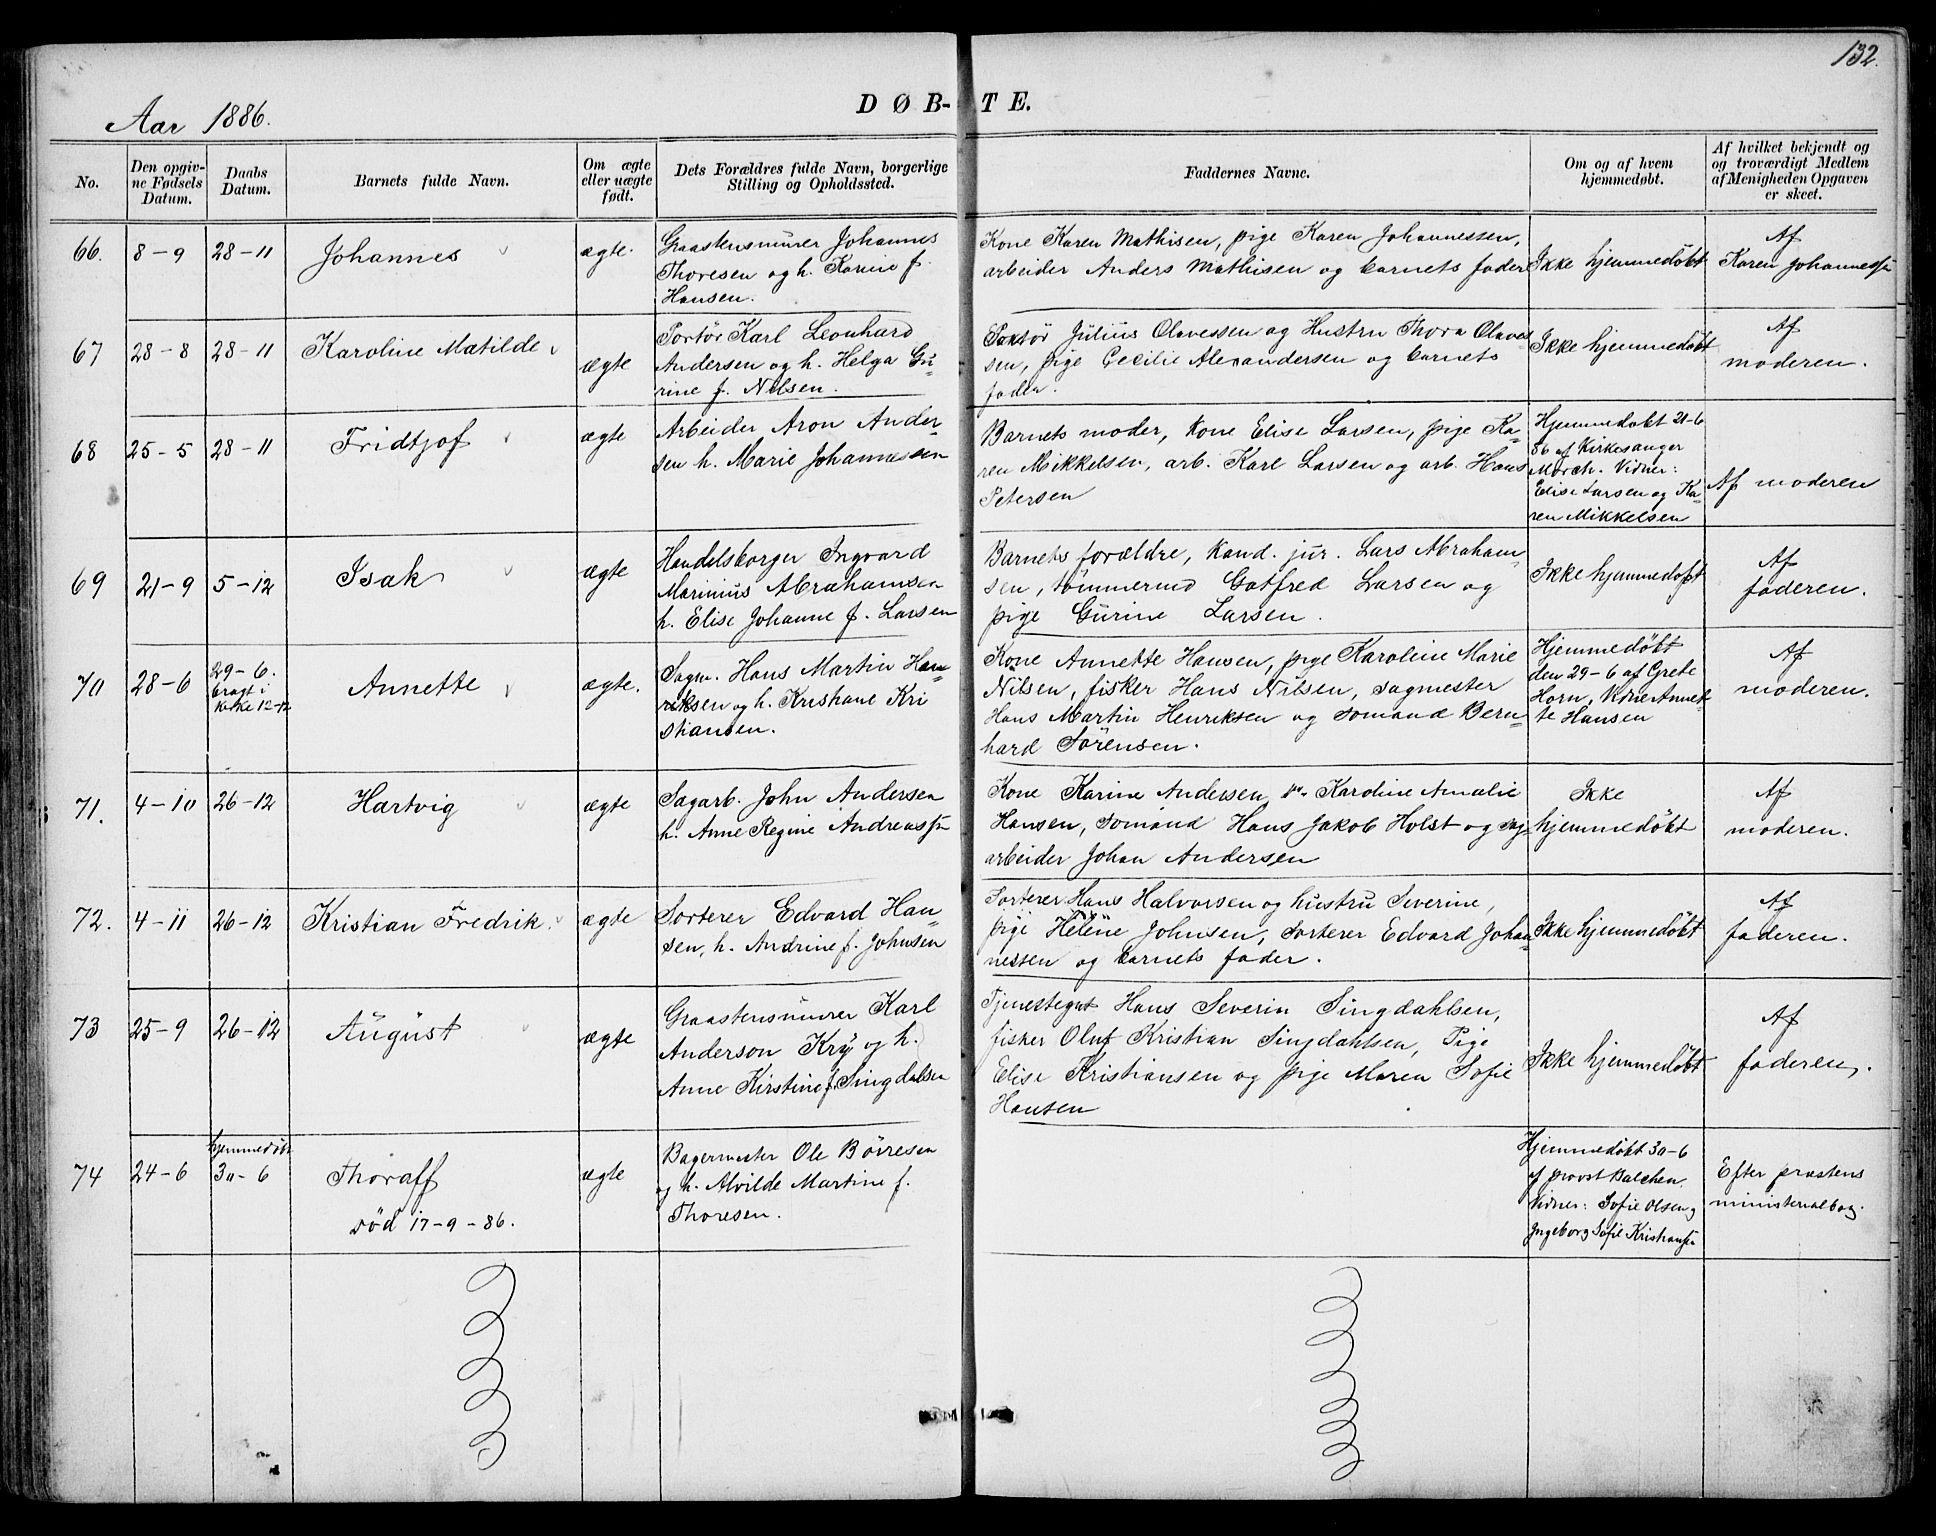 132.
Aar 1886.
DØB-TE.
No.
Den opgiv-
ne Fødsels
Datum.
Daabs
Datum.
Barnets fulde Navn.
Om ægte
eller uægte
født.
Dets Forældres fulde Navn, borgerlige
Stilling og Opholdssted.
Faddernes Navne.
Om og af hvem
hjemmedøbt.
Af hvilket bekjendt og
og troværdigt Medlem
af Menigheden Opgaven
er skeet.
66.
8-9
28-11
Johannes
ægte.
Graastensmurer Johannes
Thoresen og h. Karine f.
Hansen.
Kone Karen Mathisen, pige Karen Johannessen,
arbeider Anders Mathisen og barnets fader
Ikke hjemmedøbt
Af
Karen Johannessen
67
28-8
28-11
Karoline Matilde
ægte
Portør Karl Leonhard
Andersen og h. Helga Gu-
rine f. Nilsen.
Portør Julius Olavessen og Hustru Thora Olaves-
sen, pige Cecilie Alexandersen og barnets
fader.
Ikke hjemmedøbt
Af
moderen.
68
25-5
28-11
Fridtjof
ægte
Arbeider Aron Ander-
sen h. Marie Johannessen
Barnets moder, kone Elise Larsen, pige Ka-
ren Mikkelsen, arb. Karl Larsen og arb. Hans
Petersen
Hjemmedøbt 21-6
86 af Kirkesanger
Mørch. Vidner:
Elise Larsen og Ka-
ren Mikkelsen
Af moderen
69
21-9
5-12
Isak
ægte
Handelsborger Ingvard
Marinius Abrahamsen
h. Elise Johanne f. Larsen
Barnets forældre, Kand. jur. Lars Abraham-
sen, tømmermd Gotfred Larsen og
pige Gurine Larsen.
Ikke hjemmedøpt
Af
faderen.
70
28-6
29-6.
bragt i
kirke 12-12
Annette
ægte.
Sagm. Hans Martin Hen-
riksen og h. Kristiane Kri
stiansen.
Kone Annette Hansen, pige Karoline Marie
Nilsen, fisker Hans Nilsen, sagmester
Hans Martin Henriksen og sømand Bern-
hard Sørensen.
Hjemmedøbt
den 29-6 af Grete
Horn, Vidne Annet-
te Hansen
Af
moderen.
71.
4-10
26-12
Hartvig
ægte
Sagarb. John Andersen
h. Anne Regine Andreassen
Kone Karine Andersen, do Karoline Amalie
Hansen, sømand Hans Jakob Holst og sag-
arbeider Johan Andersen
Ikke
hjemmedøbt
Af
moderen.
72.
4-11
26-12
Kristian Fredrik.
ægte
Sorterer Edvard Han-
sen, h. Andrine f. Johnsen
Sorterer Hans Halvorsen og hustru Severine,
pige Helene Johnsen, sorterer Edvard Johan
nessen og barnets fader.
Ikke hjemmedøbt
Af
faderen.
73
25-9
26-12
August
ægte
Graastensmurer Karl
Anderson Kry og h.
Anne Kirstine f. Singdalsen
Tjenestegut Hans Severin Singdahlsen,
fisker Oluf Kristian Singdahlsen, Pige
Elise Kristiansen og pige Maren Sofie
Hansen
Ikke hjemmedøbt
Af
faderen.
74
24-6
hjemmedøbt
30-6
Thoralf
død 17-9-86.
ægte
Bagermester Ole Børresen
og h. Alvilde Martine f.
Thoresen.
Hjemmedøbt 30-6
af provst Balchen.
Vidner: Sofie Olsen og
Ingeborg Sofie Kristiansen
Efter præstens
ministerialbog.